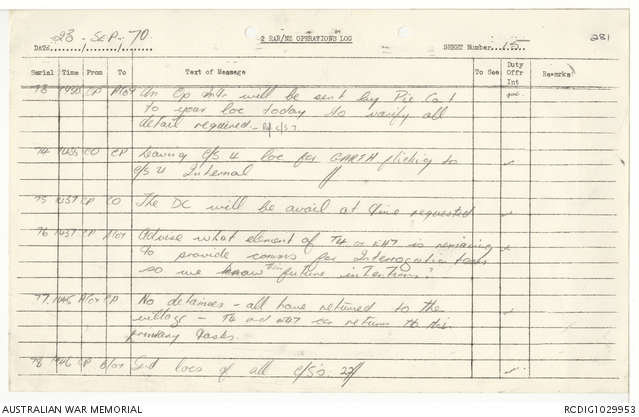 23 - SEP - 70
2 RAR/NZ OPERATIONS LOG
DATE
SHEET Number 15
281
Serial Time From To Text of Message To See Duty Offr Int Remarks
73 CP An Op mtr will be sent by Pie Cart
to your loc today to verify all
detail required -
74 1435 CO CP Leaving C/S 4 loc for GARTH flicking to
C/S 4 Internal
75 1437 CP CO The DC will be avail at time requested
76 1437 CP Advise what element of T4 or is remaining
to provide comms for Interrogation
so we know future intentions?
77 CP No detainees - all have returned to the
village - T4 and can return to
primary tasks
78 1446 CP Send locs of all C/S's
AUSTRALIAN WAR MEMORIAL
RCDIG1029953